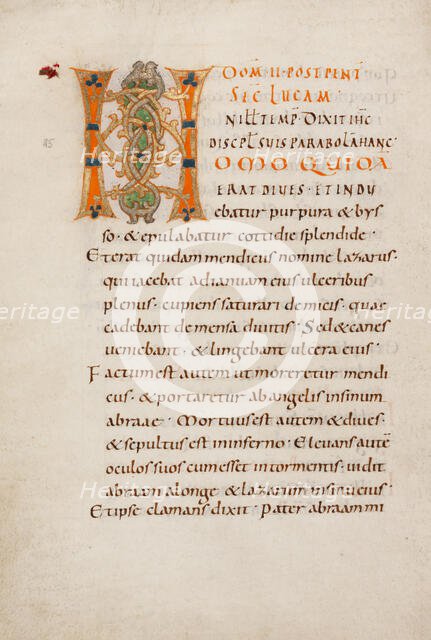 DOM̅·II·POST PENT̅
SEC̅ LUCAM·
N ILL TEMP̅·DIXIT IH̅C
DISCPL̅·SUIS PARABOLAM HANC·
HOMO QUIDA̅
ERAT DIUES·ET INDU
ebatur purpura & bys
so·& epulabatur cottidie splendide·
Et erat quidam mendicus nomine lazarus·
qui iacebat ad ianuam eius ulceribus
plenus·cupiens saturari de micis·quae
cadebant de mensa diuitis·Sed & canes
ueniebant·& lingebant ulcera eius·
Factum est autem ut moreretur mendi
cus·& portaretur ab angelis in sinum
abrae·Mortuus est autem & diues·
& sepultus est in inferno·Eleuans aute̅
oculos suos cum esset in tormentis·uidit
abraam a longe & lazarum in sinu eius·
Et ipse clamans dixit·Pater abraam mi
85
Heritage
Heritage
Heritage
Heritage
Heritage
Heritage